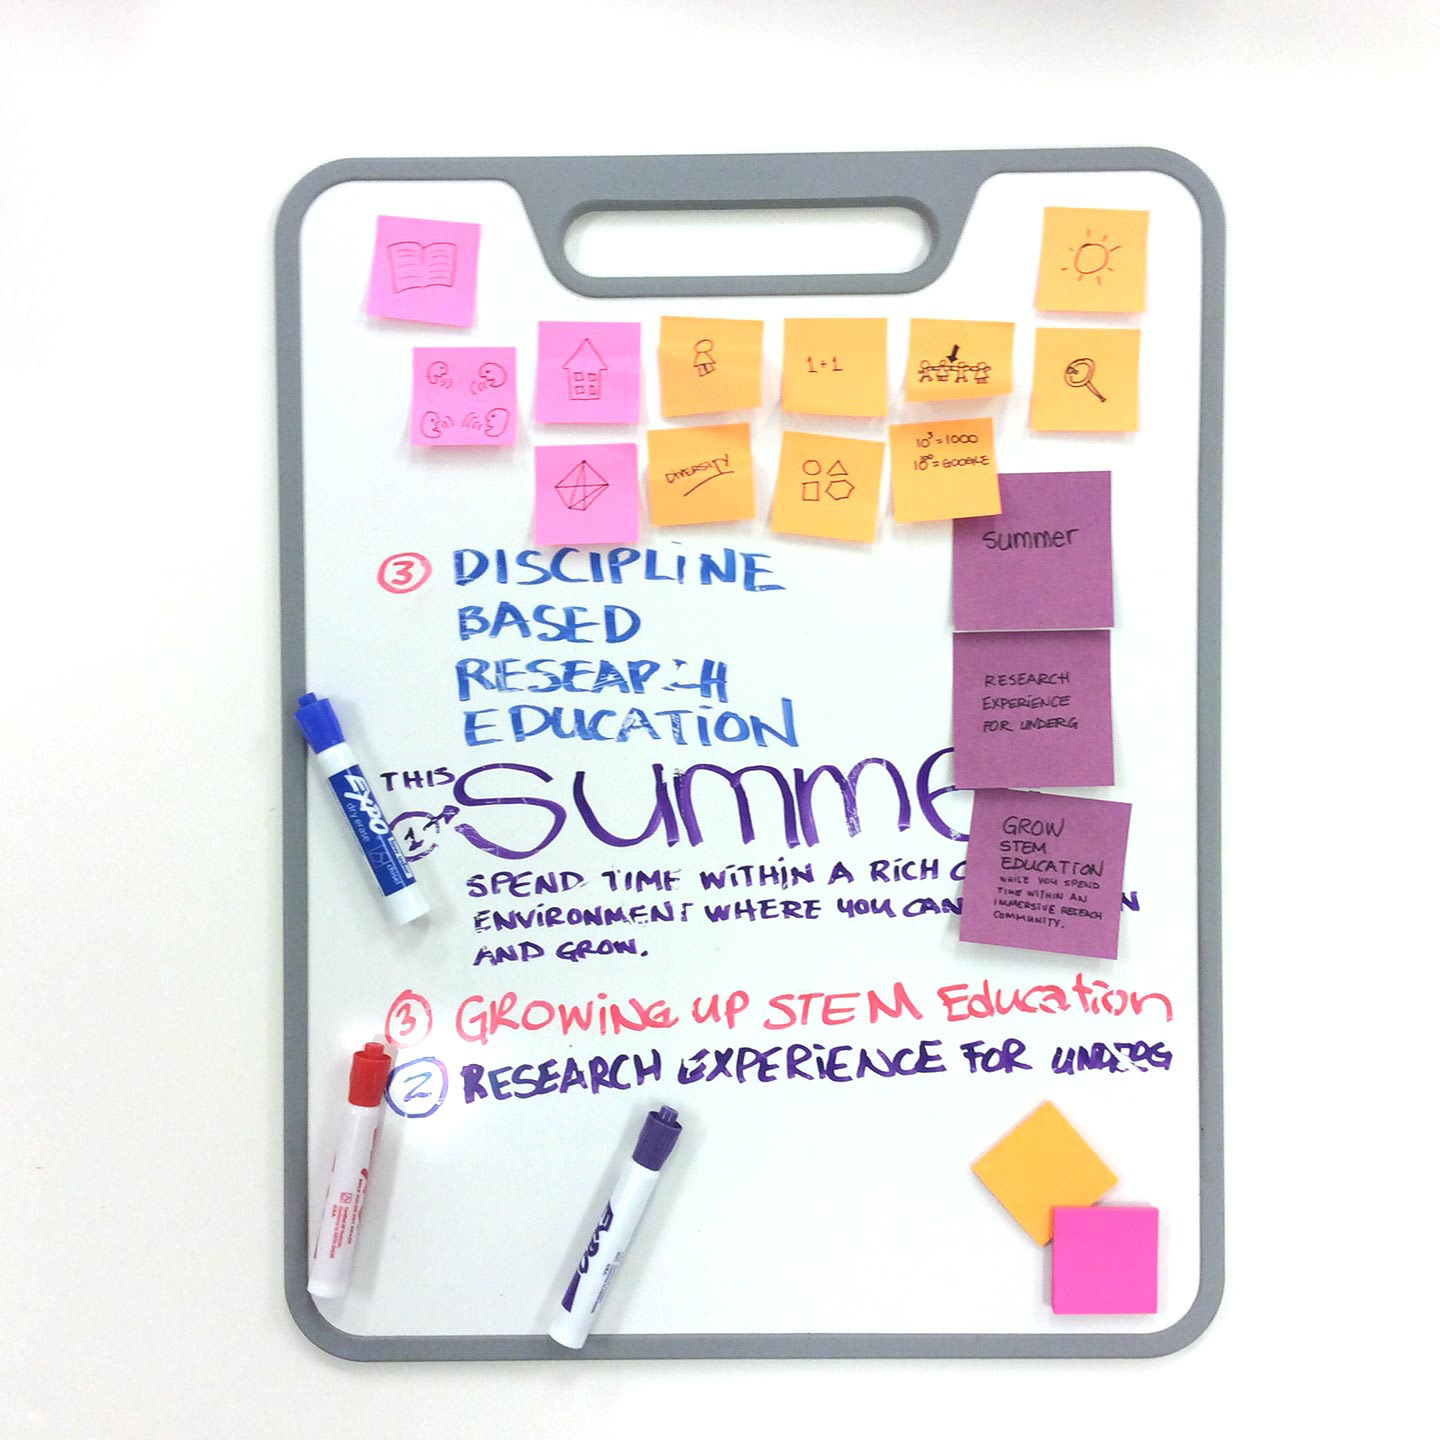 1+1
DIVERSITY
10³=1000
10¹⁰⁰=GOOGLE
Summer
③ DISCIPLINE
BASED
RESEARCH
EDUCATION
RESEARCH
EXPERIENCE
FOR UNDERG
THIS
① SUMME
GROW
STEM
EDUCATION
WHILE YOU SPEND
TIME WITHIN AN
IMMERSIVE RESEACH
COMMUNITY.
SPEND TIME WITHIN A RICH
ENVIRONMENT WHERE YOU CAN
AND GROW.
③ GROWING UP STEM Education
② RESEARCH EXPERIENCE FOR UNDERG
EXPO
dry erase
chisel
EXPO